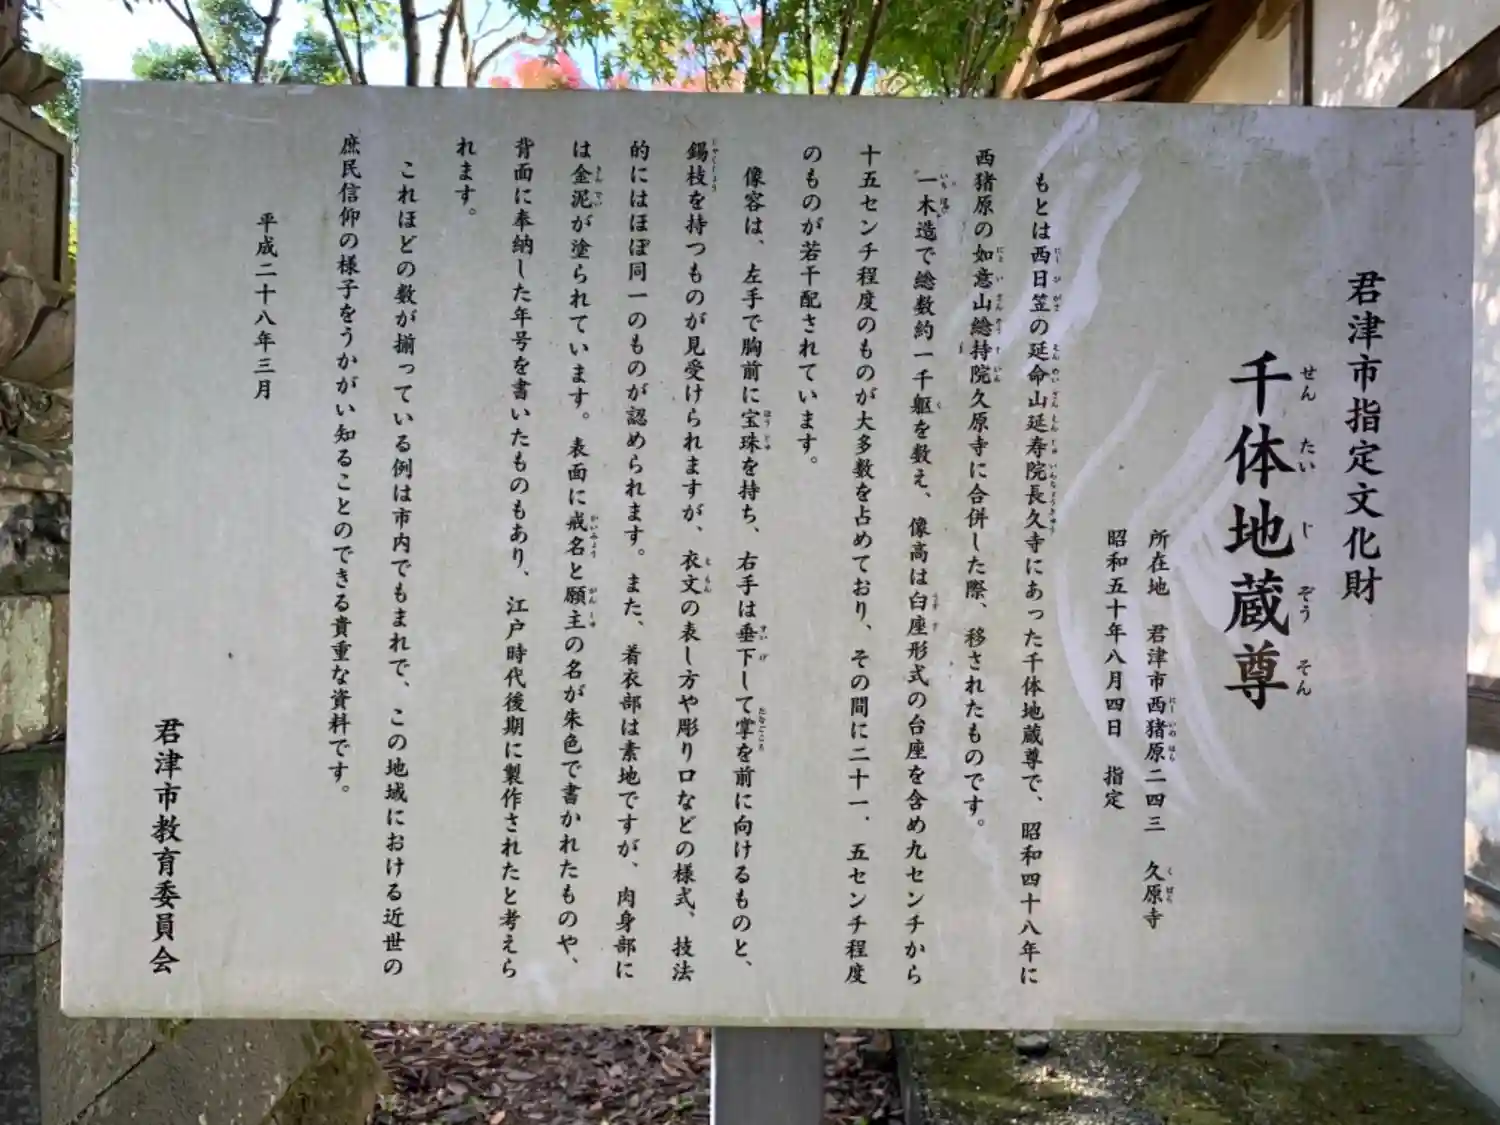 君津市指定文化財
千体地蔵尊
せんたいじぞうそん
所在地　君津市西猪原二四三　久原寺
昭和五十年八月四日　指定
もとは西日笠の延命山延寿院長久寺にあった千体地蔵尊で、昭和四十八年に
西猪原の如意山総持院久原寺に合併した際、移されたものです。
一木造で総数約一千躯を数え、像高は臼座形式の台座を含め九センチから
十五センチ程度のものが大多数を占めており、その間に二十一．五センチ程度
のものが若干配されています。
像容は、左手で胸前に宝珠を持ち、右手は垂下して掌を前に向けるものと、
錫枝を持つものが見受けられますが、衣文の表し方や彫り口などの様式、技法
的にはほぼ同一のものが認められます。また、着衣部は素地ですが、肉身部に
は金泥が塗られています。表面に戒名と願主の名が朱色で書かれたものや、
背面に奉納した年号を書いたものもあり、江戸時代後期に製作されたと考えら
れます。
これほどの数が揃っている例は市内でもまれで、この地域における近世の
庶民信仰の様子をうかがい知ることのできる貴重な資料です。
平成二十八年三月
君津市教育委員会